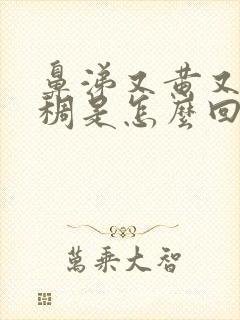 鼻涕又黄又
稠是怎麼回
萬乘大智